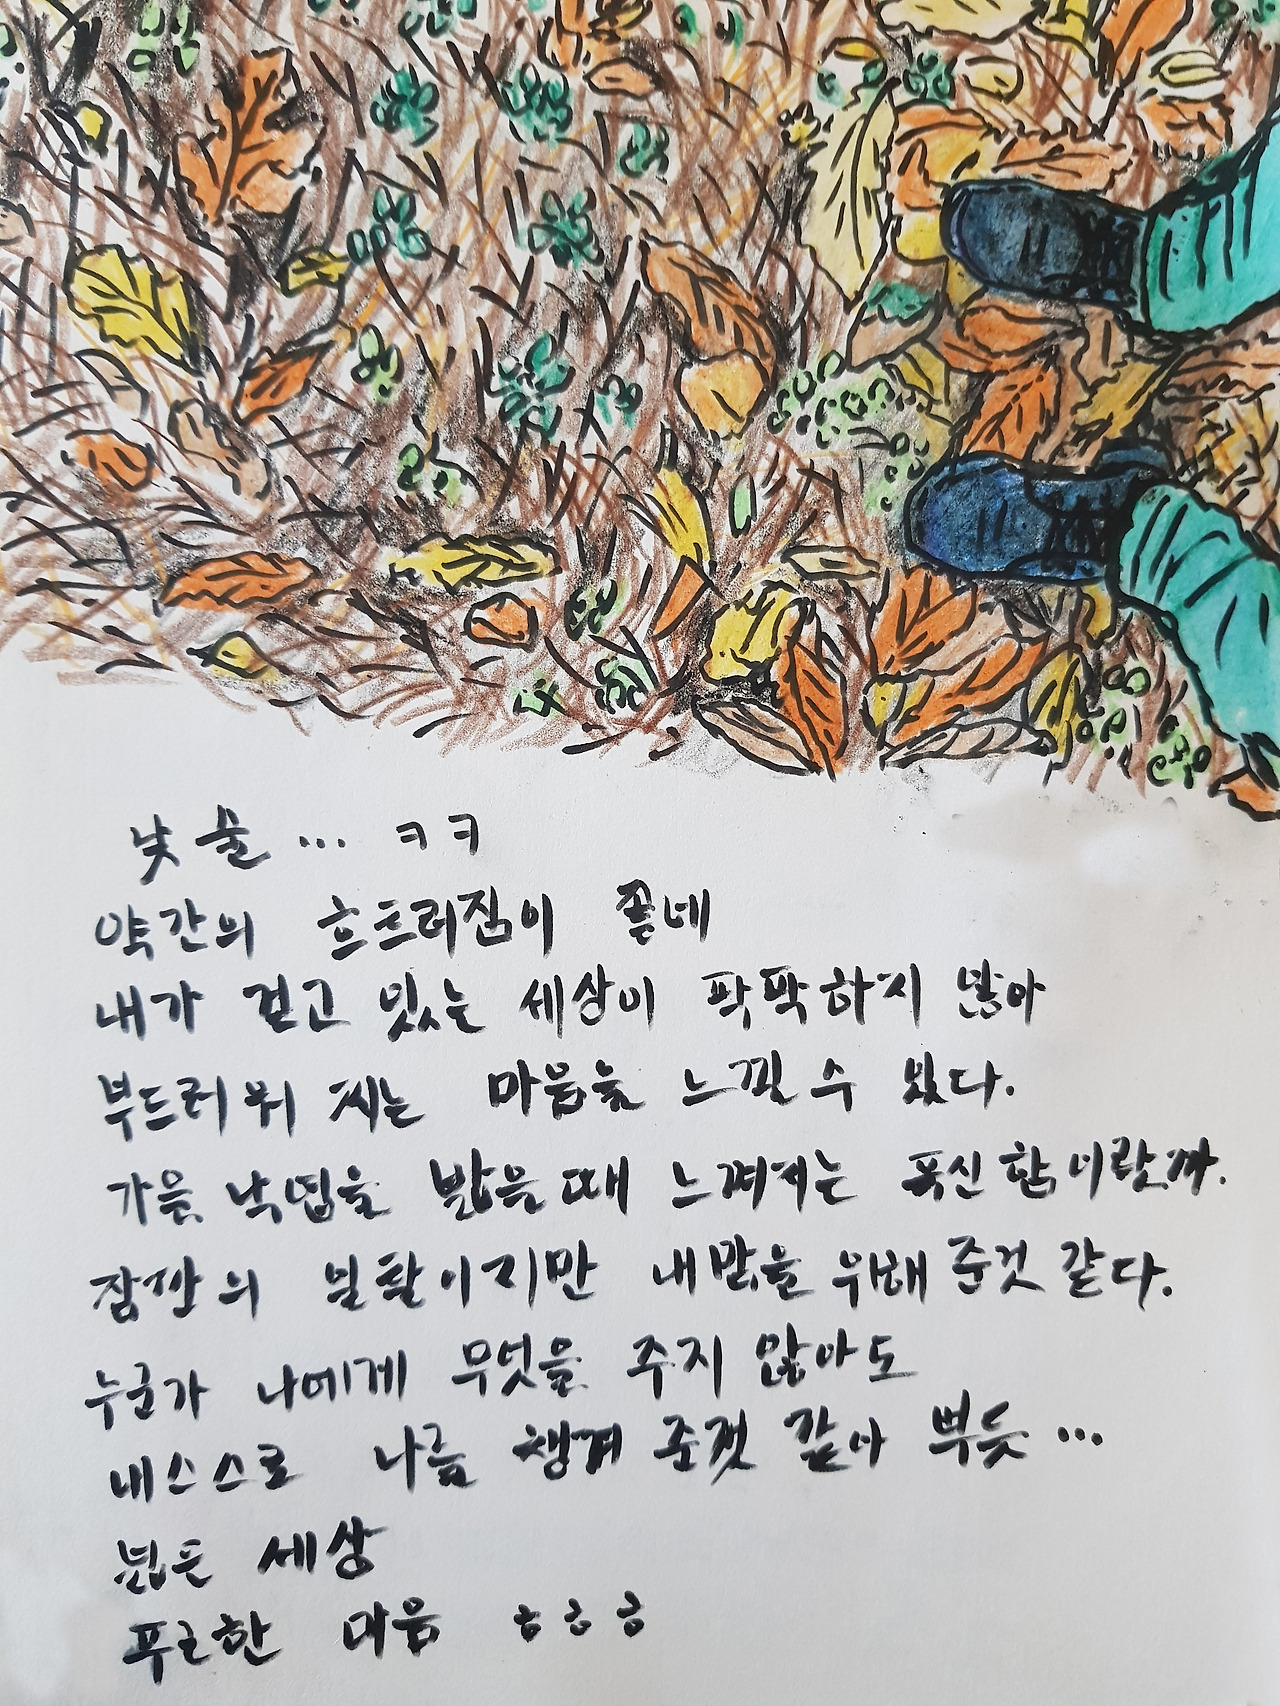 낮술... ㅋㅋ
약간의 흐트러짐이 좋네
내가 걷고 있는 세상이 팍팍하지 않아
부드러워 지는 마음을 느낄 수 있다.
가을 낙엽을 밟을때 느껴지는 푹신함이랄까.
잠깐의 일탈이지만 내맘을 위해 준것 같다.
누군가 나에게 무엇을 주지 않아도
내스스로 나를 챙겨 준것 같아 뿌듯...
넓은 세상
푸근한 마음 ㅎㅎㅎ